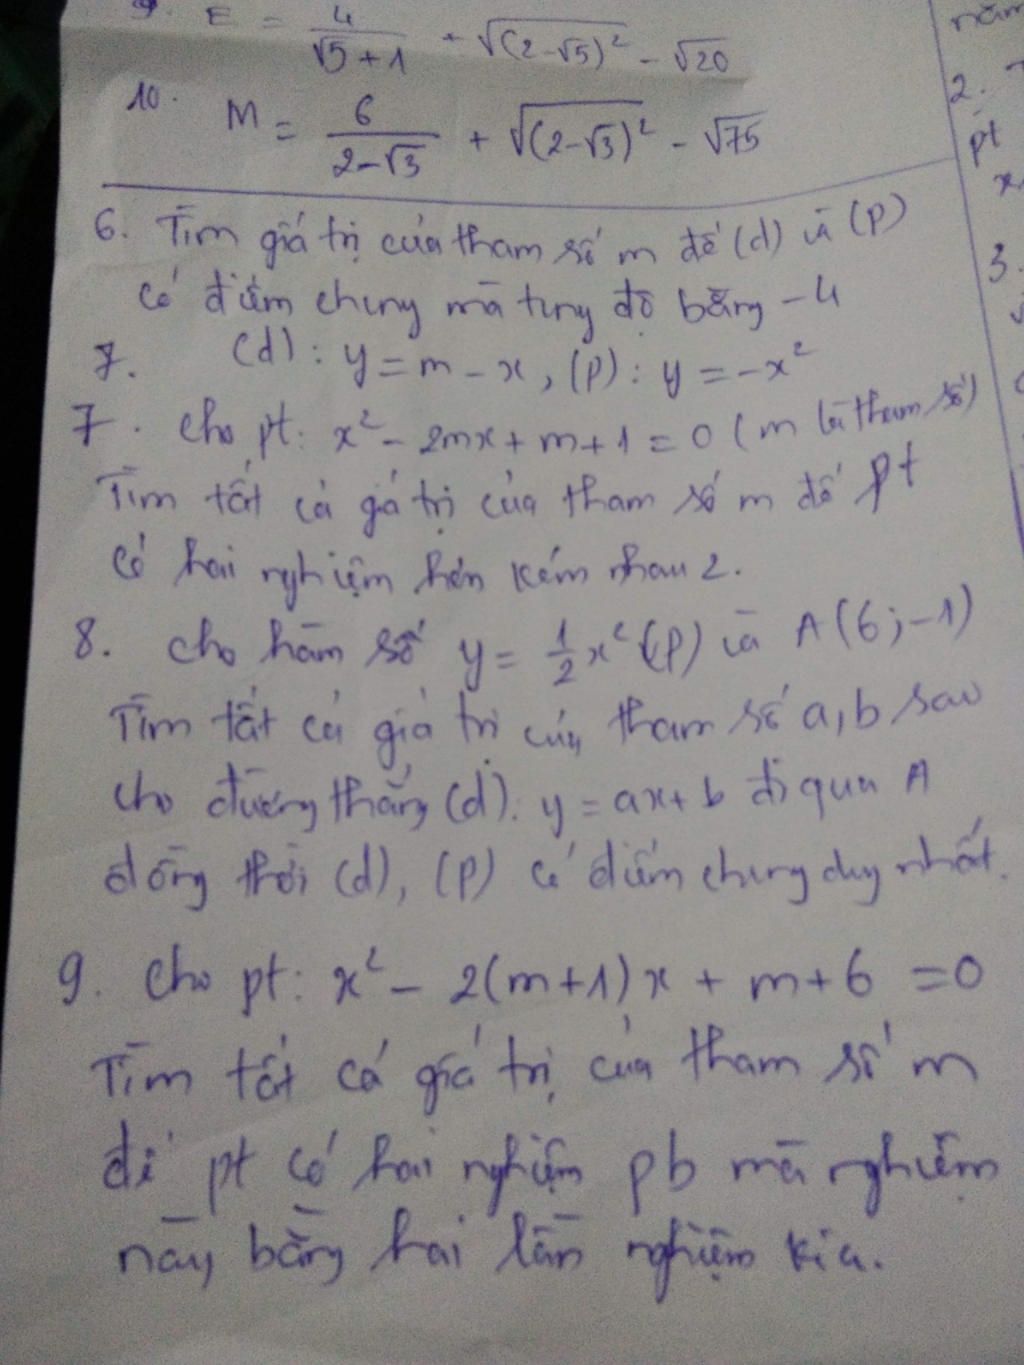 9. E = 4/(√5+1) + √(2-√5)² - √20
10. M = 6/(2-√3) + √(2-√3)² - √75
6. Tìm giá trị của tham số m để (d) và (P)
có điểm chung mà tung độ bằng -4
7. (d): y = m - x, (P): y = -x²
7. Cho pt: x² - 2mx + m + 1 = 0 (m là tham số)
Tìm tất cả giá trị của tham số m để pt
có hai nghiệm hơn kém nhau 2.
8. Cho hàm số y = 1/2x² (P) và A(6; -1)
Tìm tất cả giá trị của tham số a, b sao
cho đường thẳng (d): y = ax + b đi qua A
đồng thời (d), (P) có điểm chung duy nhất.
9. Cho pt: x² - 2(m+1)x + m + 6 = 0
Tìm tất cả giá trị của tham số m
để pt có hai nghiệm pb mà nghiệm
này bằng hai lần nghiệm kia.
năm
2.
pt
3.